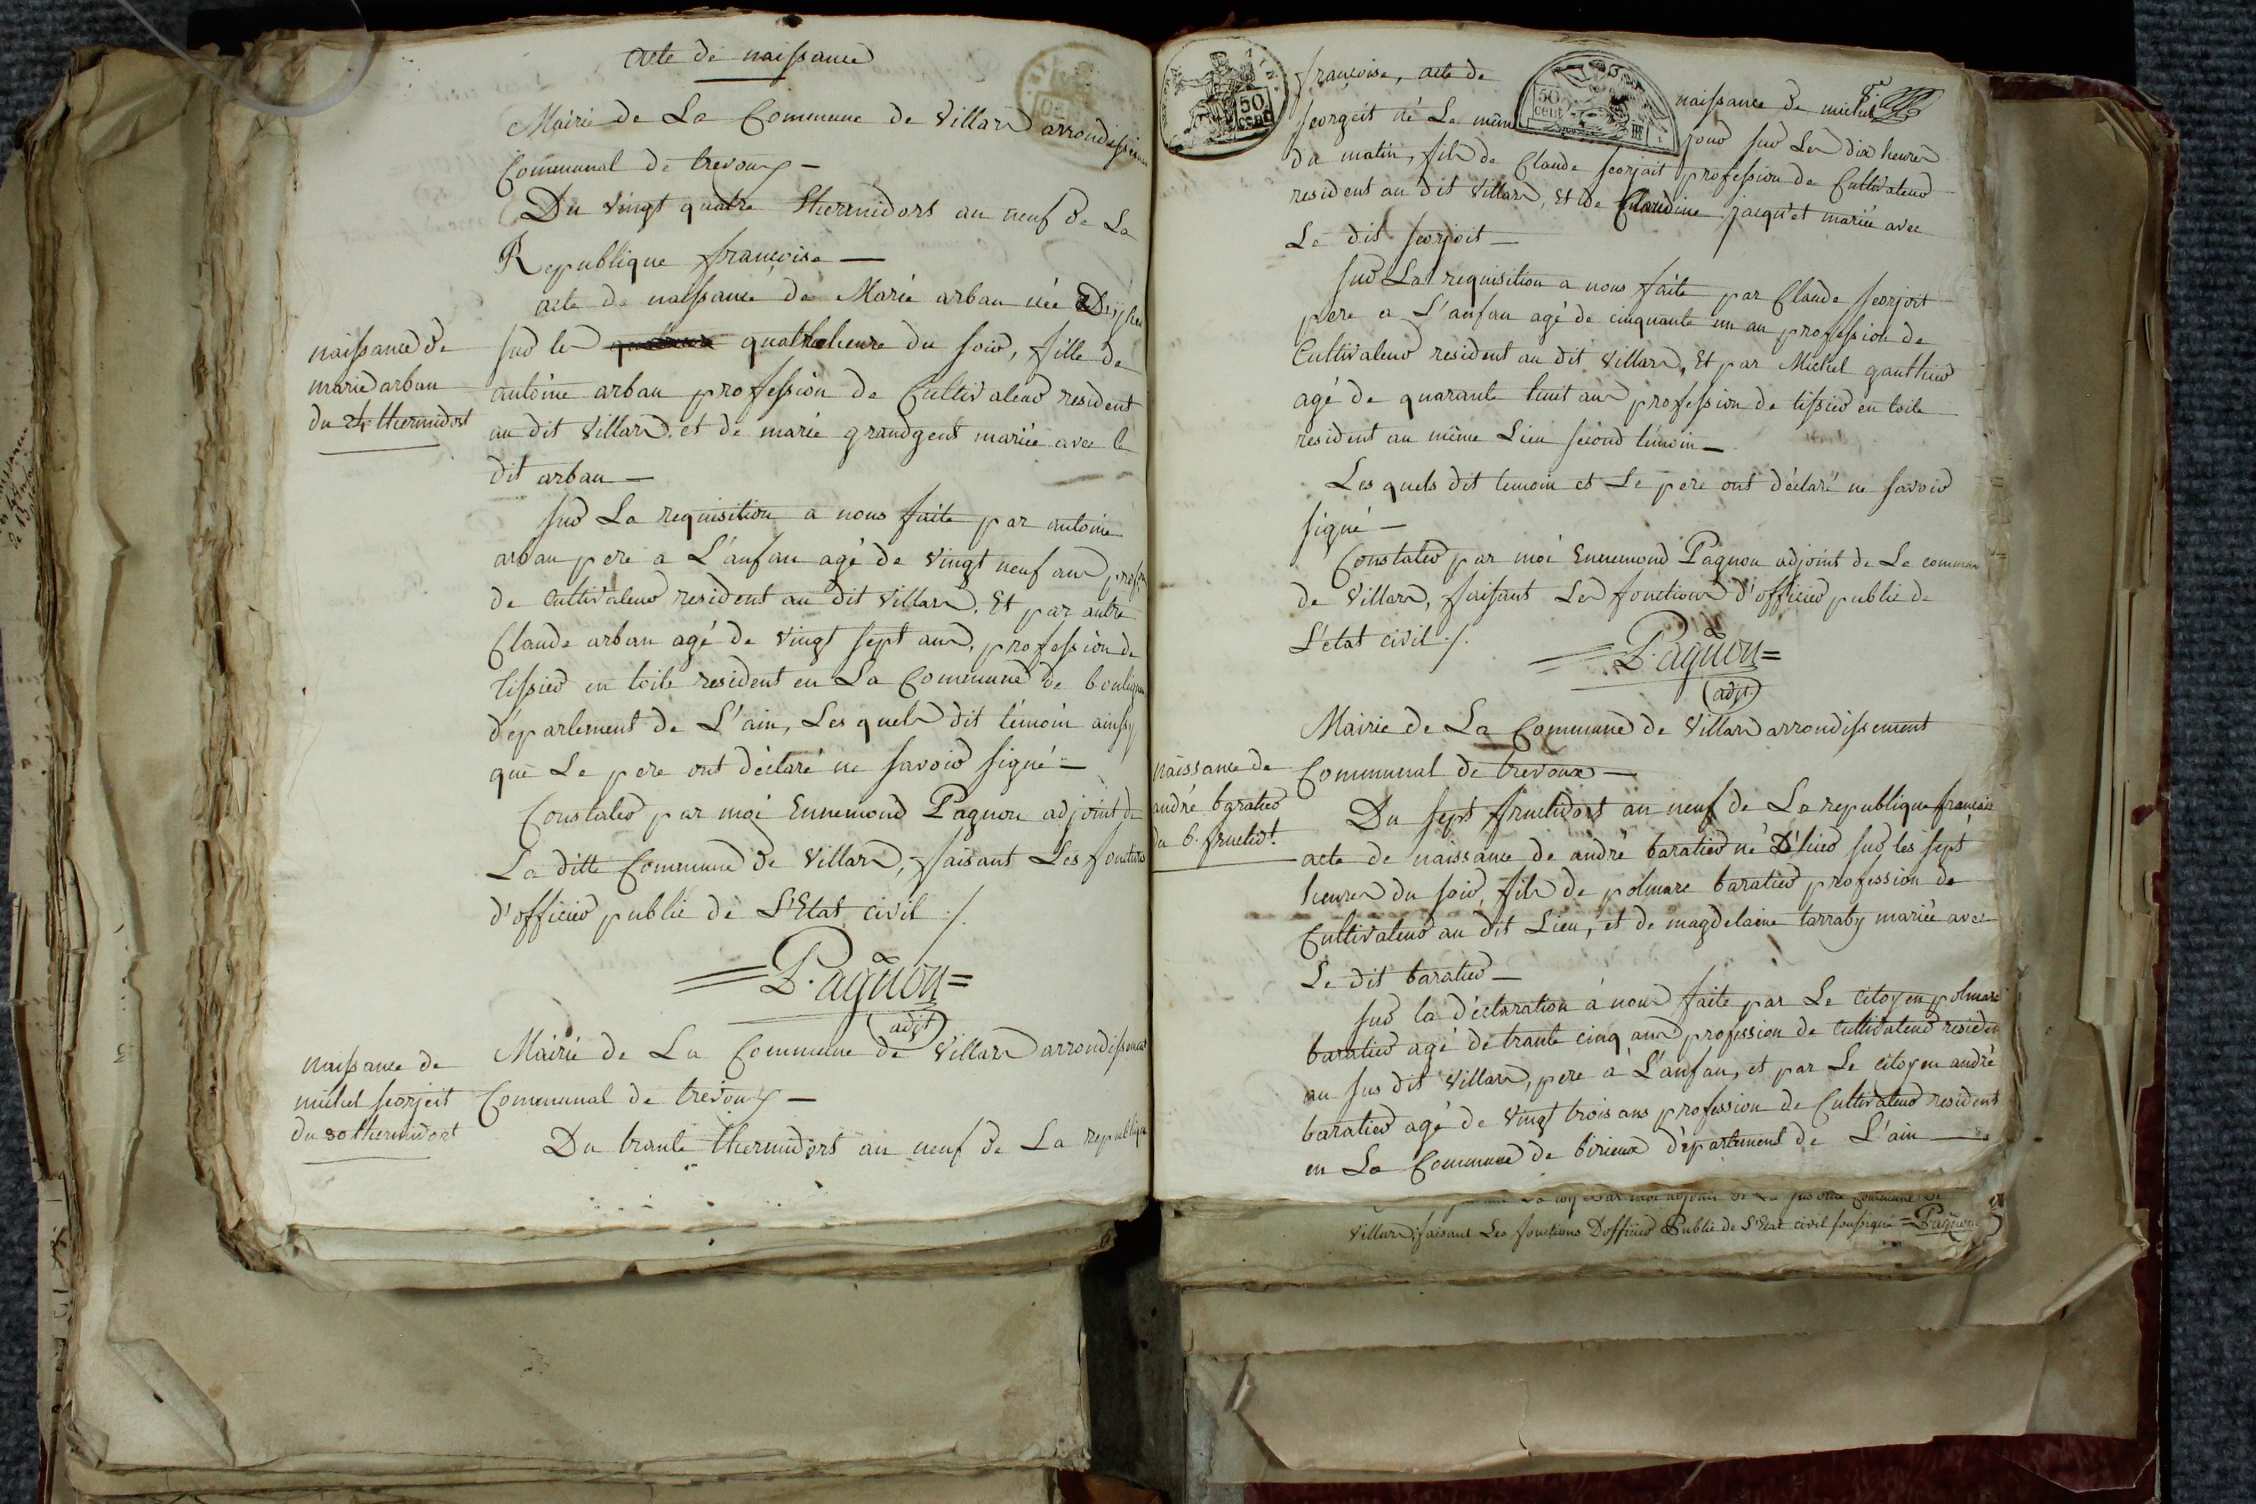 acte de naissance
Mairie de La Commune de Villars arrondissem
Communal de trevoux —
Du vingt quatre thermidors an neuf de La
Republique françoise —
acte de naissance de Marie arban née
naissance de
marie arban
du 24 thermidort
sur les quatre heure du soir, fille de
antoine arban profession de Cultivateur resident
au dit Villars, et de marie grandgent mariée avec le
dit arban —
sur La requisition a nous faite par antoine
arban pere a L'anfan agé de vingt neuf ans
de Cultivateur resident au dit Villars. Et par autre
Claude arban agé de vingt sept ans, profession de
tissier en toile resident en La Commune de bouligneu
département de L'ain, Les quels dit témoin ainssy
que Le pere ont déclaré ne savoir signé —
Constater par moi Ennemond Pagnon adjoint de
La ditte Commune de Villars, faisant Les fonctions
d'officier public de L'Etat civil ./.
= Pagnon =
adjt
naissance de
michel seorjeit
du 30 thermidort
Mairie de La Commune de Villars arrondissement
Communal de trevoux —
Du trante thermidors an neuf de La republique
50 CENT
50 cent
françoise, acte de naissance de michel
seorgeit né Le mem jour sur Les dix heures
du matin, fils de Claude seorjait profession de Cultivateur
resident au dit Villars, et de Claudine jacquet mariée avec
Le dit seorjoit —
sur La requisition a nous faite par Claude seorjoit
pere a L'anfan agé de cinquante un an profession de
Cultivateur resident au dit Villars, Et par Michel gauthier
agé de quarante huit ans profession de tissier en toile
resident au même Lieu second témoin —
Les quels dit temoin et Le pere ont déclaré ne savoir
signé —
Constater par moi Ennemond Pagnon adjoint de La commun
de Villars, faisant Les fonctions d'officier public de
L'etat civil ./.
= Pagnon =
adjt
Mairie de La Commune de Villars arrondissement
Communal de trevoux —
naissance de
andré baratier
du 6. fructidt
Du sept fructidors an neuf de La republique français
acte de naissance de andré baratier né D'hier sur les sept
heures du soir, fils de polmare baratier profession de
Cultivateur au dit Lieu, et de magdelaine tarraby mariée avec
Le dit baratier —
sur la déclaration à nous faite par Le Citoyen polmare
baratier agé de trante cinq ans profession de Cultivateur residen
au sus dit Villars, pere à L'anfan, et par Le citoyen andré
baratier agé de vingt trois ans profession de Cultivateur resident
en La Commune de birieux département de L'ain —
Villars, faisant Les fonctions D'officier Public de L'Etat civil soussigné = Pagnon